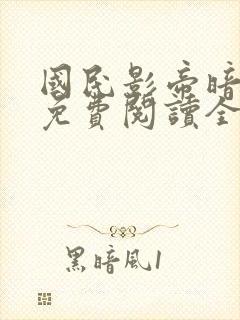 國民影帝暗
免費閱讀全
黑暗風1